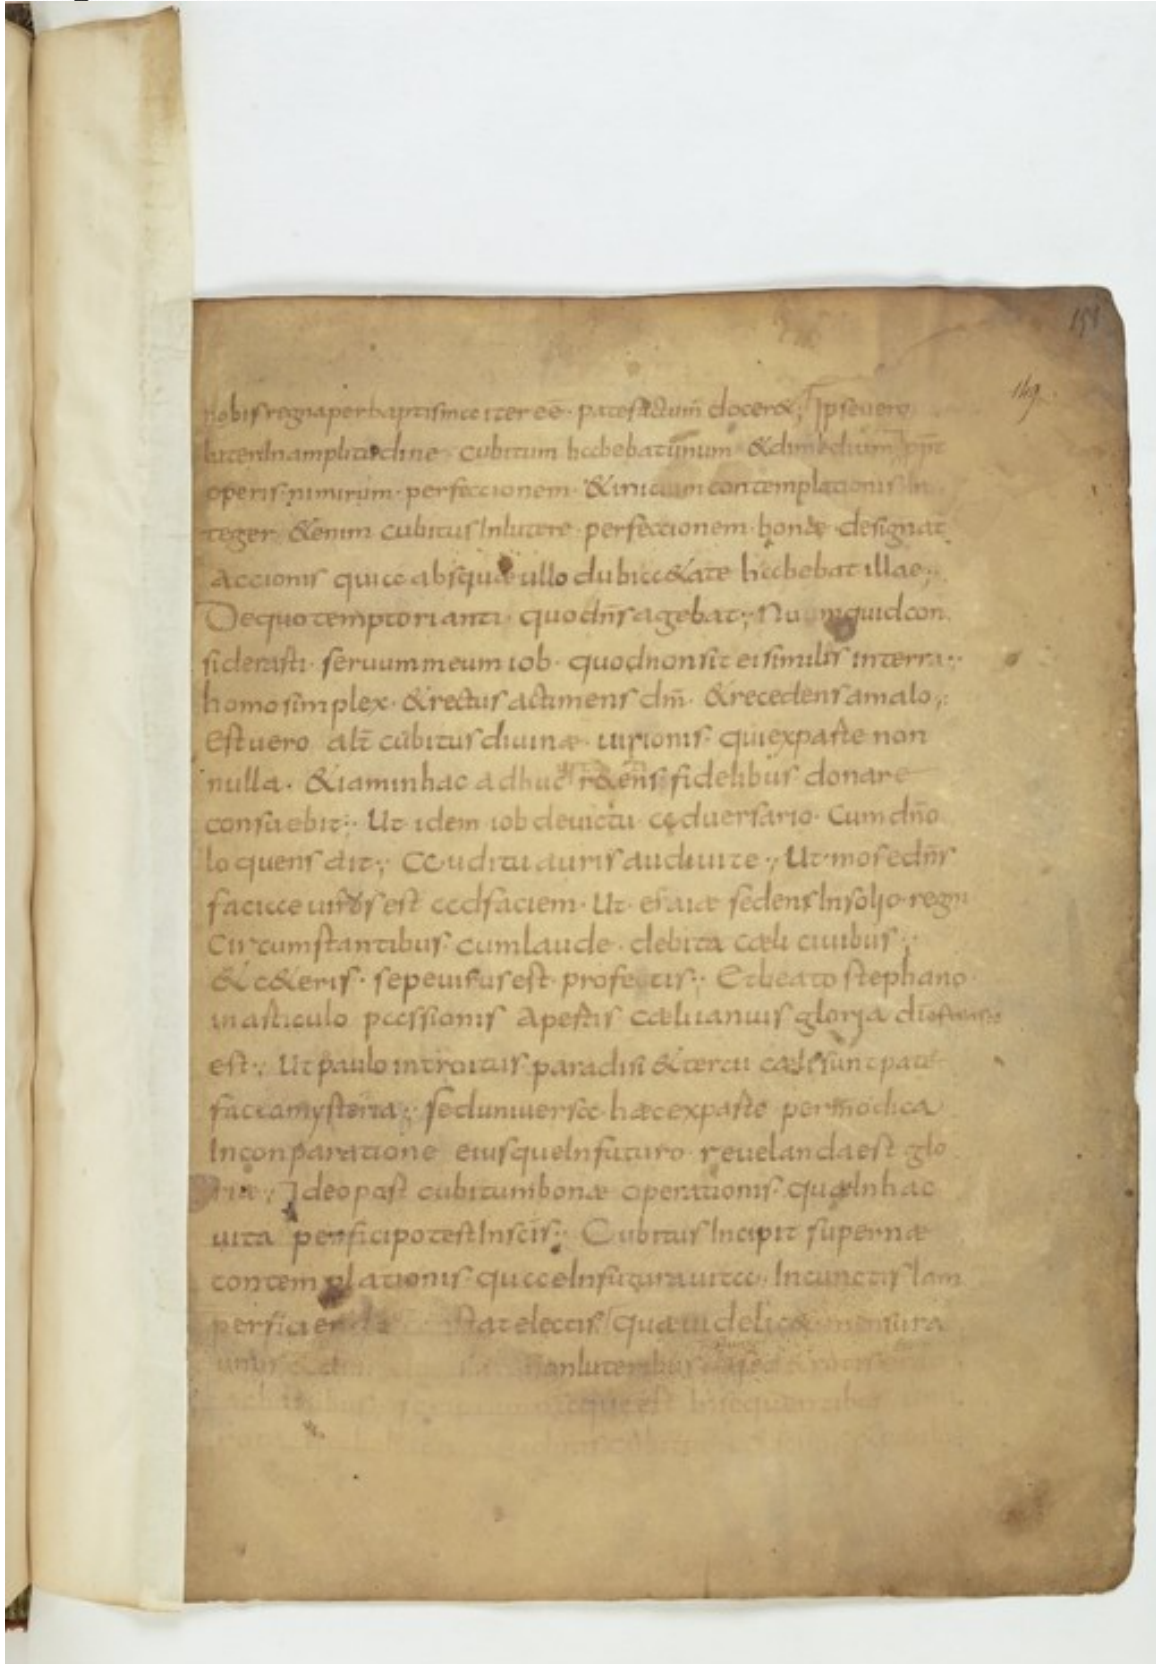 158
149
nobis regna per baptismate iter eē · patefactum docer&; Ipse vero
luter In amplitudine cubitum habebat unum & dimedium ppt
operis nimirum · perfeccionem · & inicium contemplationis In
teger &enim cubitus In lutere · perfeccionem · bonae designat
Accionis quia absque ullo dubia &ate habebat illae;
De quo temptorianti · quod dn̄s agebat; Numquid con
siderasti · seruum meum iob · quod non sit ei similis in terra;
homo simplex · & rectus ac timens dm̄ · & recedens a malo;
Est uero alt̄ cubitus diuinae · uisionis · qui ex parte non
nulla · & iam in hac adhuc r&ens fidelibus donare
consuebit; Ut idem iob deuictu aduersario · Cum dn̄o
loquens ait; Auditu auris audiui te; Ut mose dn̄s
faciae uisus est ad faciem · Ut esaiae sedens In solio regni
Circumstantibus cum laude · debita caeli ciuibus;
& c&eris · sepe uisus est profectis; Et beato stephano
in articulo passionis Apertis caeli ianuis gloria dī
est; Ut paulo introitus paradisi & tercii caeli sunt pate
facta mysteria; sed uniuersa haec ex parte permodica
In conparatione eius que In futuro reuelanda est glo
riae; Ideo post cubitum bonae operationis quae In hac
uita perfici potest In scis; Cubitus Incipit supernae
contemplationis quae In futura uita In cunctis Iam
perficienda stat electis quae uidelic& mensura
unius luteribus sed & rotis
que est In sequentibus